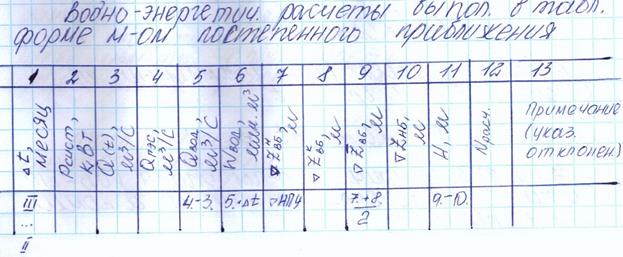 Водно-энергетич. расчеты выпол. в табл.
форме м-ом постепенного приближения
1 2 3 4 5 6 7 8 9 10 11 12 13
Δt, месяц
Pсист, кВт
Q(t), м³/с
Qгэс, м³/с
Qвод, м³/с
Wвод, млн. м³
▽Zᴴвб, м
▽Zᴷвб, м
▽Z̅вб, м
▽Zнб, м
H, м
Nрасч.
Примечание (указ. отклонен.)
III 4.-3. 5.·Δt ▽НПУ 7.+8./2 9.-10.
⋮
II